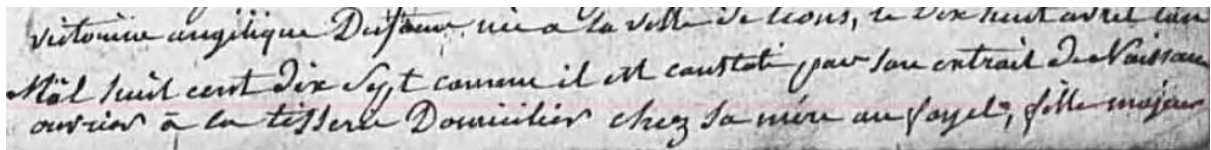 victorine angélique Dufour née a la ville de Lions, le Dix huit avril l'an
Mil huit cent dix Sept comme il est constaté par son extrait de Naissance
ouvrier à la tisserie Domicilier chez Sa mére au fayel, fille majeur